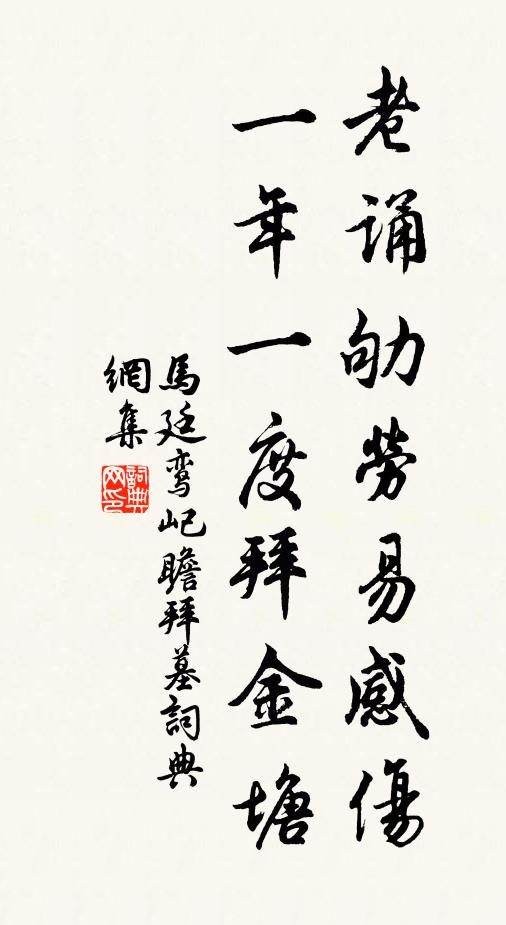 老诵劬勞易感傷
一年一度拜金塘
馬廷鸾屺瞻拜墓詞典
網集
詞典網印